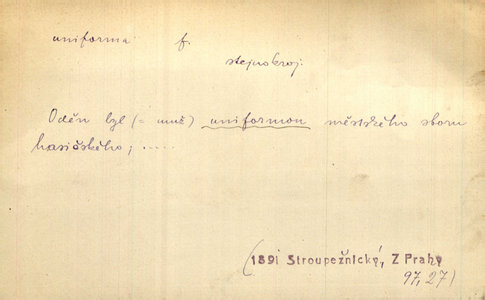 uniforma f.
stejnokroj.
Oděn byl (= muž) uniformou městského sboru
hasičského; .....
(1891 Stroupežnický, Z Prahy
97,27)